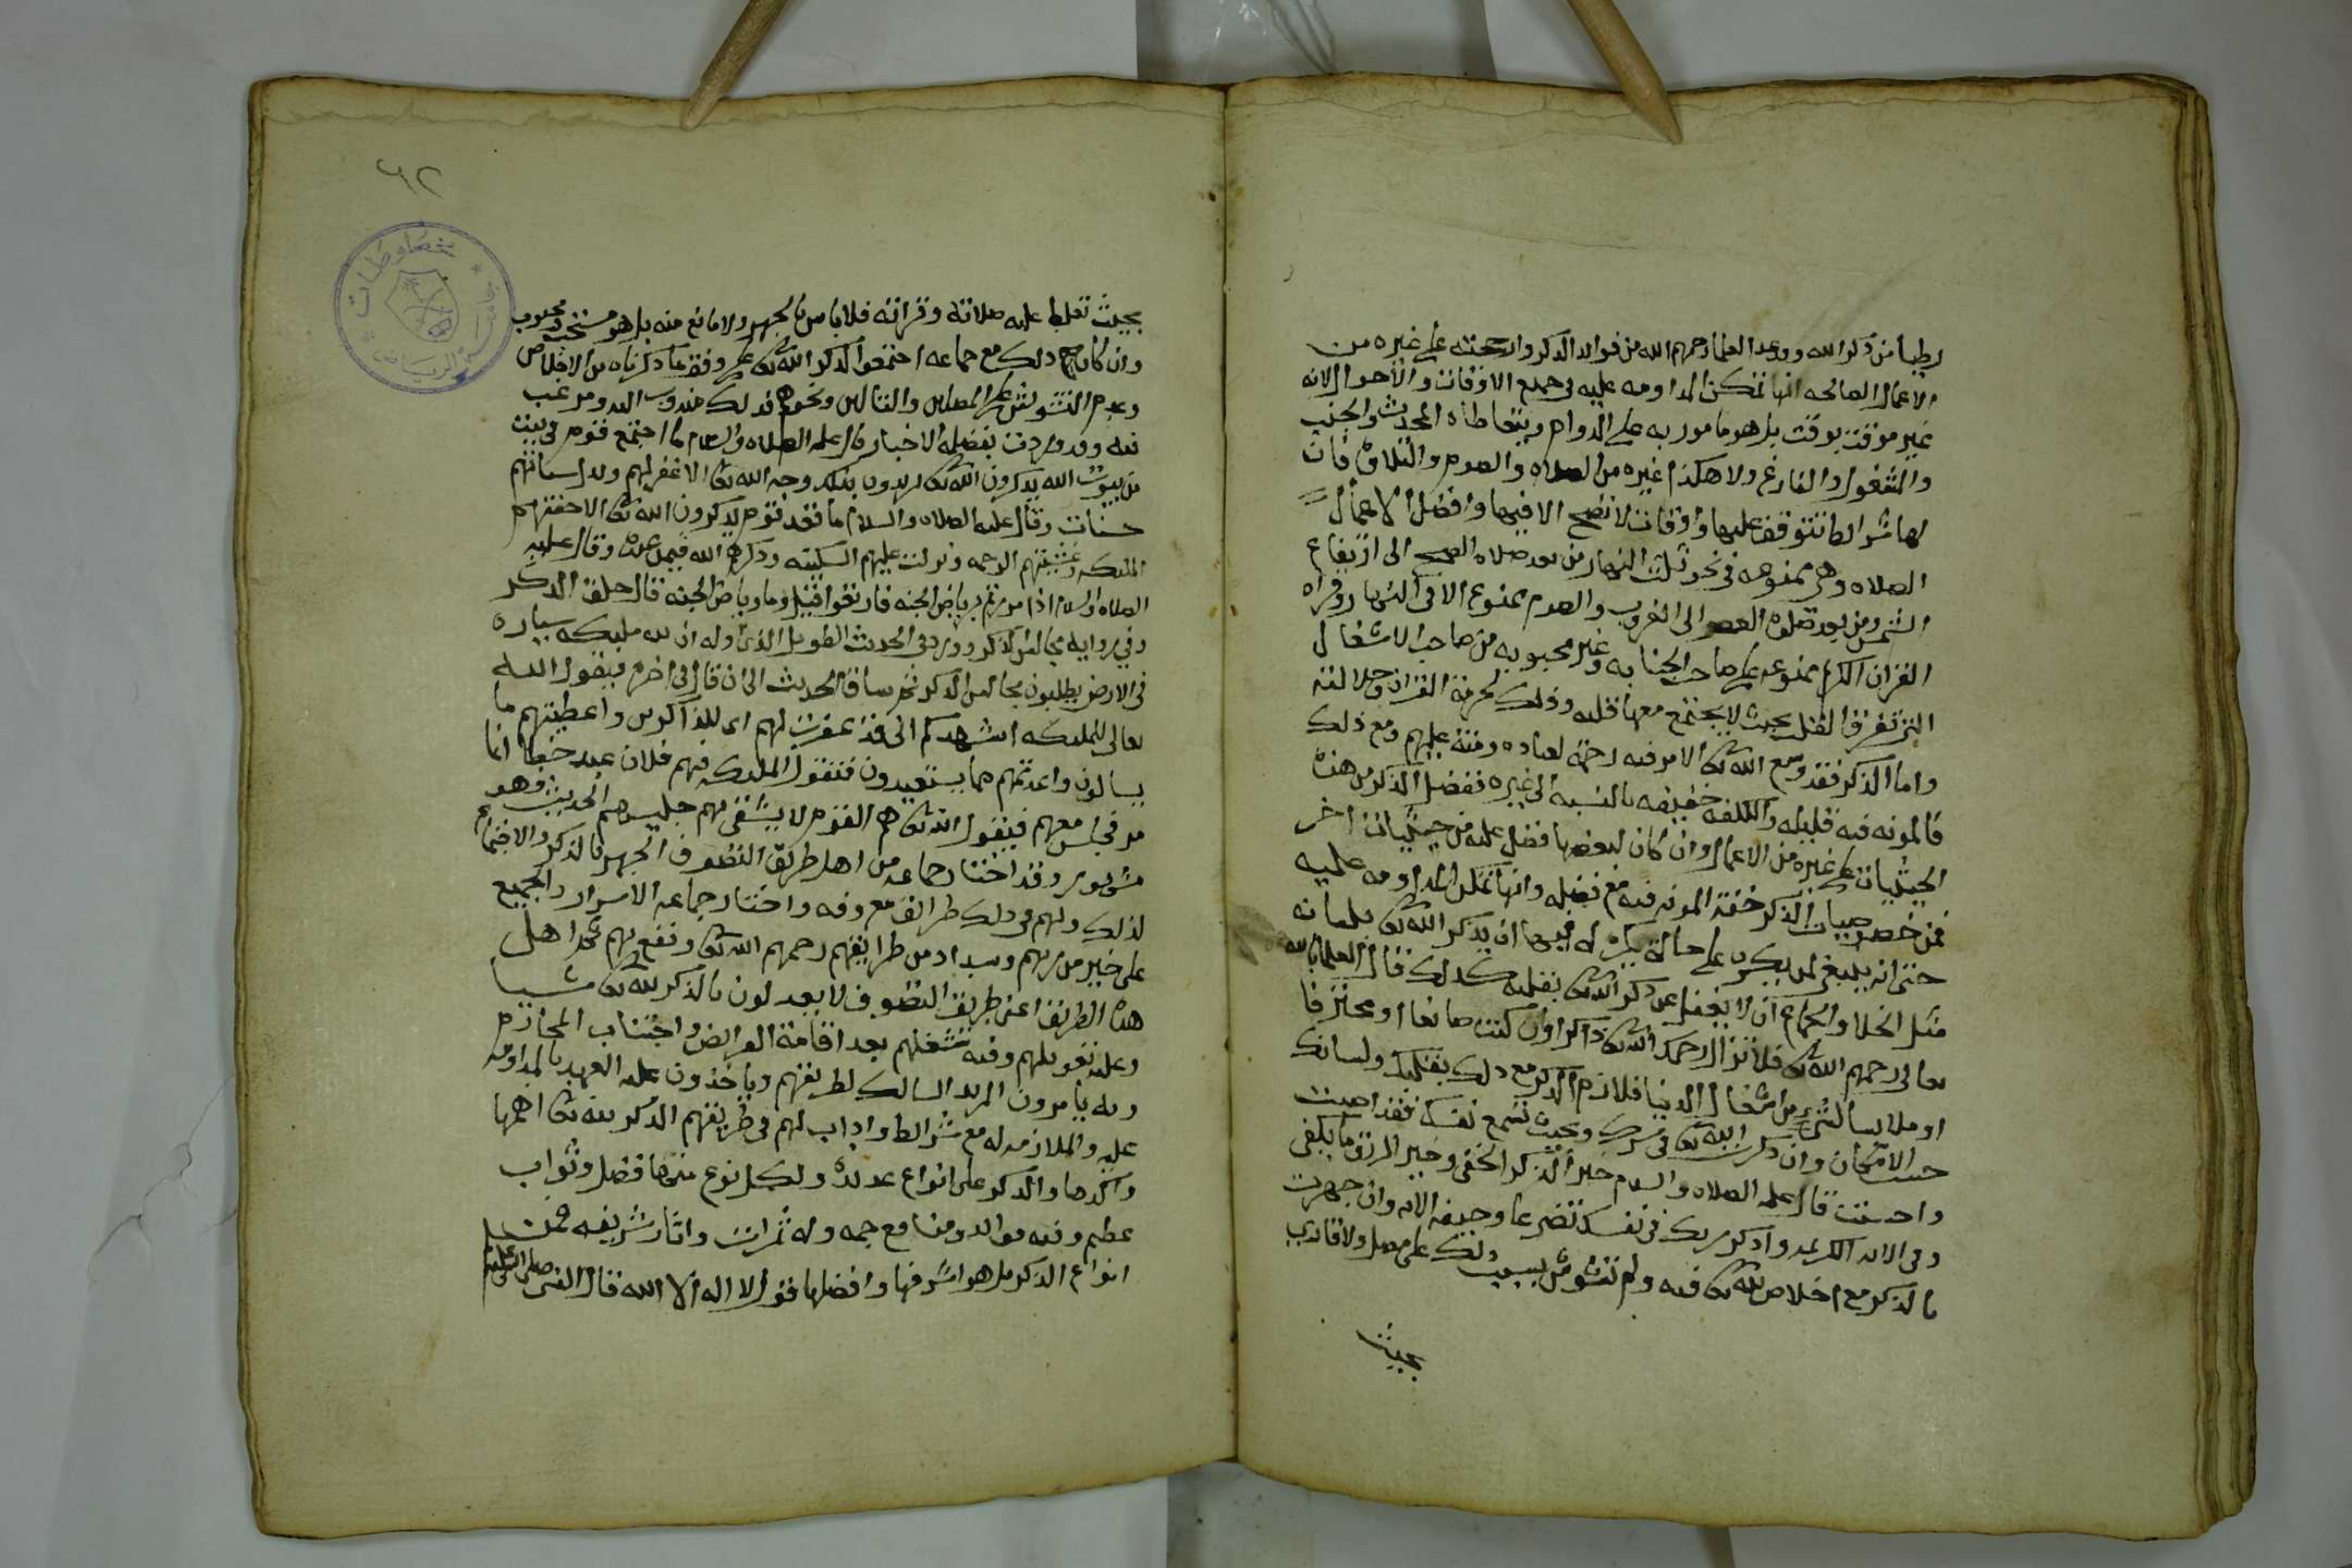 رطبا من ذكر الله وقد عد العلما رحمهم الله من فوائد الذكر وارجحته على غيره من
الاعمال الصالحه انها تمكن المداومه عليه في جميع الاوقات والاحوال لانه
غير موقت بوقت بل هو مامور به على الدوام ويتعاطاه المحدث والجنب
والمشغول والفارغ ولا هكذا غيره من الصلاه والصوم والتلاوة فان
لها شرائط تتوقف عليها واوقات لا تصح الا فيها وافضل الاعمال
الصلاه وهي ممنوعه في نحو ثلث النهار من بعد صلاه الصبح الى ارتفاع
الشمس ومن بعد صلوة العصر الى الغروب والصوم ممنوع الا في النهار وقراه
القران الكريم ممنوعه على صاحب الجنابه وغير محبوبه من صاحب الاشغال
التي تفرق القلب بحيث لا يجتمع معها قلبه وذلك لحرمة القران وجلالته
واما الذكر فقد وسع الله تعا الامر فيه رحمة لعباده ومنة عليهم ومع ذلك
فالمونه فيه قليله والكلفه خفيفه بالنسبه الى غيره ففضل الذكر من هذه
الحيثيات على غيره من الاعمال وان كان لبعضها فضل عليه من حيثيات اخر
فمن خصوصيات الذكر خفة المونه فيه مع فضله وانها تمكن المداومه عليه
حتى انه ينبغي لمن يكون على حالة يكره له فيها ان يذكر الله تعا بلسانه
مثل الخلا والجماع ان لا يغفل عن ذكر الله تعا بقلبه كذلك قال العلما بالله
تعالى رحمهم الله تعا فلا تزال رحمك الله تعا ذاكرا وان كنت صانعا او محترفا
او ملابسا لشيء من اشغال الدنيا فلازم الذكر مع ذلك بقلبك ولسانك
حسب الامكان وان ذكرت الله تعا في سرك وبحيث تسمع نفسك فقد اصبت
واحسنت قال عليه الصلاه والسلام خير الذكر الخفي وخير الرزق ما يكفي
وفي الايه الكريمه واذكر ربك في نفسك تضرعا وخيفه الايه وان جهرت
بالذكر مع اخلاص لله تعا فيه ولم تشوش بسبب ذلك على مصل ولا قاري
بحيث
٦٢
بحيث تغلط عليه صلاته وقرائته فلا باس بالجهر ولا مانع منه بل هو مستحب ومحبوب
وان كان ذلك مع جماعه اجتمعوا لذكر الله تعا على وفق ما ذكرناه من الاخلاص
وعدم التشويش على المصلين والتالين ونحوهم فذلك مندوب اليه ومرغب
فيه وقد وردت بفضله الاخبار قال عليه الصلاه والسلام ما اجتمع قوم في بيت
من بيوت الله يذكرون الله تعا يريدون بذلك وجه الله تعا الا غفر لهم وبدل سيئاتهم
حسنات وقال عليه الصلاه والسلام ما قعد قوم يذكرون الله تعا الا حفتهم
الملئكه وغشيتهم الرحمه ونزلت عليهم السكينه وذكرهم الله فيمن عنده وقال عليه
الصلاه والسلام اذا مررتم برياض الجنه فارتعوا قيل وما رياض الجنه قال حلق الذكر
وفي روايه مجالس الذكر وورد في الحديث الطويل الذي اوله ان لله مليكه سياره
في الارض يطلبون مجالس الذكر ثم ساق الحديث الى ان قال في اخره فيقول الله
تعالى للمليكه اشهدكم اني قد غفرت لهم اي للذاكرين واعطيتهم ما
يسالون واعذتهم مما يستعيذون فتقول المليكه فيهم فلان عبد خطا انما
مر فجلس معهم فيقول الله تعا هم القوم لا يشقى بهم جليسهم الحديث وهو
مشهور وقد اختار جماعه من اهل طريق التصوف الجهر بالذكر والاجتماع
لذلك ولهم في ذلك طرائق معروفه واختار جماعه الاسرار والجميع
على خير من ربهم وسداد من طرايقهم رحمهم الله تعا ونفع بهم ثم اهل
هذه الطريقه اعني طريقة التصوف لا يعدلون بالذكر لله تعا شييا
وعليه تعويلهم وفيه شغلهم بعد اقامة الفرائض واجتناب المحارم
وبه يامرون المريد السالك لطريقتهم وياخذون عليه العهد بالمداومه
عليه والملازمه له مع شرائط واداب لهم في طريقتهم الذكر لله تعا اهمها
واكدها والذكر على انواع عديده ولكل نوع منها فضل وثواب
عظيم وفيه فوائد ومنافع جمه وله ثمرات واثار شريفه فمن
انواع الذكر بل هو اشرفها وافضلها قول لا اله الا الله قال النبي صلى الله عليه